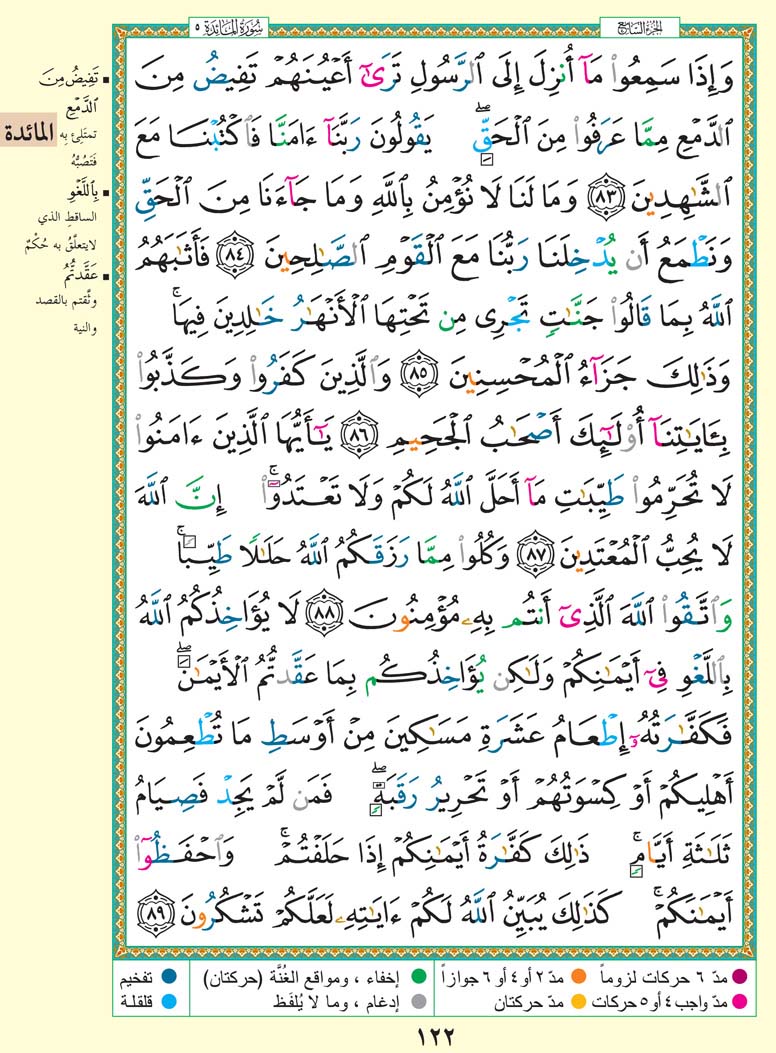 سُورَةُ المَائدة ٥
الجُزءُ السَّابِعُ
وَإِذَا سَمِعُوا۟ مَآ أُنزِلَ إِلَى ٱلرَّسُولِ تَرَىٰٓ أَعْيُنَهُمْ تَفِيضُ مِنَ
ٱلدَّمْعِ مِمَّا عَرَفُوا۟ مِنَ ٱلْحَقِّ ۖ يَقُولُونَ رَبَّنَآ ءَامَنَّا فَٱكْتُبْنَا مَعَ
ٱلشَّٰهِدِينَ ٨٣ وَمَا لَنَا لَا نُؤْمِنُ بِٱللَّهِ وَمَا جَآءَنَا مِنَ ٱلْحَقِّ
وَنَطْمَعُ أَن يُدْخِلَنَا رَبُّنَا مَعَ ٱلْقَوْمِ ٱلصَّٰلِحِينَ ٨٤ فَأَثَٰبَهُمُ
ٱللَّهُ بِمَا قَالُوا۟ جَنَّٰتٍ تَجْرِى مِن تَحْتِهَا ٱلْأَنْهَٰرُ خَٰلِدِينَ فِيهَا ۚ
وَذَٰلِكَ جَزَآءُ ٱلْمُحْسِنِينَ ٨٥ وَٱلَّذِينَ كَفَرُوا۟ وَكَذَّبُوا۟
بِـَٔايَٰتِنَآ أُو۟لَٰٓئِكَ أَصْحَٰبُ ٱلْجَحِيمِ ٨٦ يَٰٓأَيُّهَا ٱلَّذِينَ ءَامَنُوا۟
لَا تُحَرِّمُوا۟ طَيِّبَٰتِ مَآ أَحَلَّ ٱللَّهُ لَكُمْ وَلَا تَعْتَدُوٓا۟ ۚ إِنَّ ٱللَّهَ
لَا يُحِبُّ ٱلْمُعْتَدِينَ ٨٧ وَكُلُوا۟ مِمَّا رَزَقَكُمُ ٱللَّهُ حَلَٰلًا طَيِّبًا ۚ
وَٱتَّقُوا۟ ٱللَّهَ ٱلَّذِىٓ أَنتُم بِهِۦ مُؤْمِنُونَ ٨٨ لَا يُؤَاخِذُكُمُ ٱللَّهُ
بِٱللَّغْوِ فِىٓ أَيْمَٰنِكُمْ وَلَٰكِن يُؤَاخِذُكُم بِمَا عَقَّدتُّمُ ٱلْأَيْمَٰنَ ۖ
فَكَفَّٰرَتُهُۥٓ إِطْعَامُ عَشَرَةِ مَسَٰكِينَ مِنْ أَوْسَطِ مَا تُطْعِمُونَ
أَهْلِيكُمْ أَوْ كِسْوَتُهُمْ أَوْ تَحْرِيرُ رَقَبَةٍ ۖ فَمَن لَّمْ يَجِدْ فَصِيَامُ
ثَلَٰثَةِ أَيَّامٍ ۚ ذَٰلِكَ كَفَّٰرَةُ أَيْمَٰنِكُمْ إِذَا حَلَفْتُمْ ۚ وَٱحْفَظُوٓا۟
أَيْمَٰنَكُمْ ۚ كَذَٰلِكَ يُبَيِّنُ ٱللَّهُ لَكُمْ ءَايَٰتِهِۦ لَعَلَّكُمْ تَشْكُرُونَ ٨٩
تَفِيضُ مِنَ
الدَّمْعِ
تمتَلِئ بِه
فَتَصُبُّهُ
المائدة
بِاللَّغْوِ
الساقطِ الذي
لايتعلَّقُ به حُكْمٌ
عَقَّدتُّمُ
وثَّقتم بالقصد
والنية
مدّ ٦ حركات لزوماً مدّ ٢ أو ٤ أو ٦ جوازاً إخفاء ، ومواقع الغُنَّة (حركتان) تفخيم
مدّ واجب ٤ أو ٥ حركات مدّ حركتان إدغام ، وما لا يُلفَظ قلقلة
١٢٢